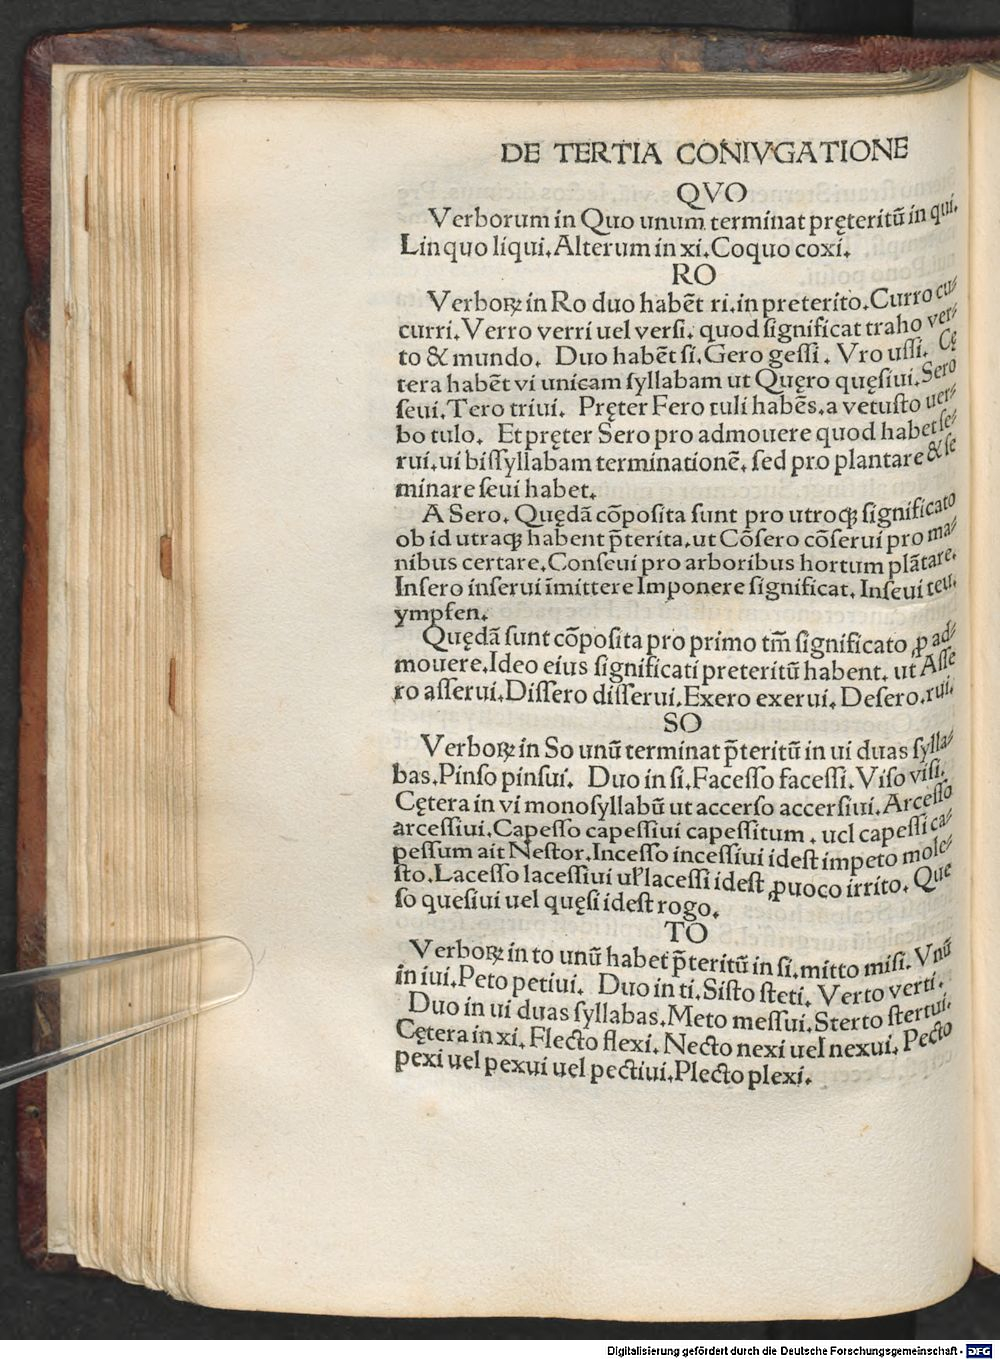 DE TERTIA CONIVGATIONE
QVO
Verborum in Quo unum terminat pręteritū in qui.
Linquo liqui. Alterum in xi. Coquo coxi.
RO
Verboꝝ in Ro duo habēt ri. in preterito. Curro cu⸗
curri. Verro verri uel versi. quod ſignificat traho ver⸗
to & mundo. Duo habēt ſi. Gero geſſi. Vro uſſi. Cę
tera habēt vi unicam ſyllabam ut Quęro quęſiui. Sero
ſeui. Tero triui. Pręter Fero tuli habēs. a vetuſto uer⸗
bo tulo. Et pręter Sero pro admouere quod habet ſe⸗
rui. ui biſſyllabam terminationē. ſed pro plantare & ſe
minare ſeui habet.
A Sero. Quędā cōpoſita ſunt pro utroqꝫ ſignificato
ob id utraqꝫ habent p̄terita. ut Cōſero cōſerui pro ma⸗
nibus certare. Conſeui pro arboribus hortum plātare.
Inſero inſerui īmittere Imponere ſignificat. Inſeui teu.
ympfen.
Quędā ſunt cōpoſita pro primo tm̄ ſignificato ꝓ ad⸗
mouere. Ideo eius ſignificati preteritū habent. ut Aſſe
ro aſſerui. Diſſero diſſerui. Exero exerui. Deſero. rui.
SO
Verboꝝ in So unū terminat p̄teritū in ui duas ſylla⸗
bas. Pinſo pinſui. Duo in ſi. Faceſſo faceſſi. Viſo viſi.
Cętera in vi monoſyllabū ut accerſo accerſiui. Arceſſo
arceſſiui. Capeſſo capeſſiui capeſſitum. uel capeſſi ca⸗
peſſum ait Neſtor. Inceſſo inceſſiui ideſt impeto mole⸗
ſto. Laceſſo laceſſiui uꝉ laceſſi ideſt ꝓuoco irrito. Que
ſo queſiui uel quęſi ideſt rogo.
TO
Verboꝝ in to unū habet p̄teritū in ſi. mitto miſi. Vnū
in iui. Peto petiui. Duo in ti. Siſto ſteti. Verto verti.
Duo in ui duas ſyllabas. Meto meſſui. Sterto ſtertui.
Cętera in xi. Flecto flexi. Necto nexi uel nexui. Pecto
pexi uel pexui uel pectiui. Plecto plexi.
Digitalisierung gefördert durch die Deutsche Forschungsgemeinschaft - DFG